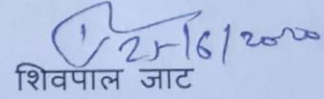 25/6/2020
शिवपाल जाट